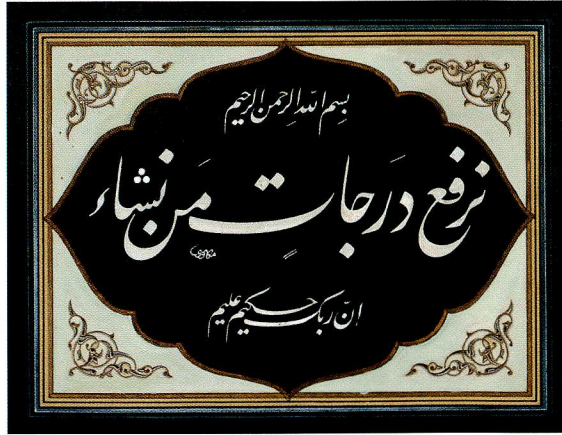 بِسم الله الرحمن الرحیم
نرفع دَرَجاتٍ مَن نشاء
انّ ربک حکیم علیم